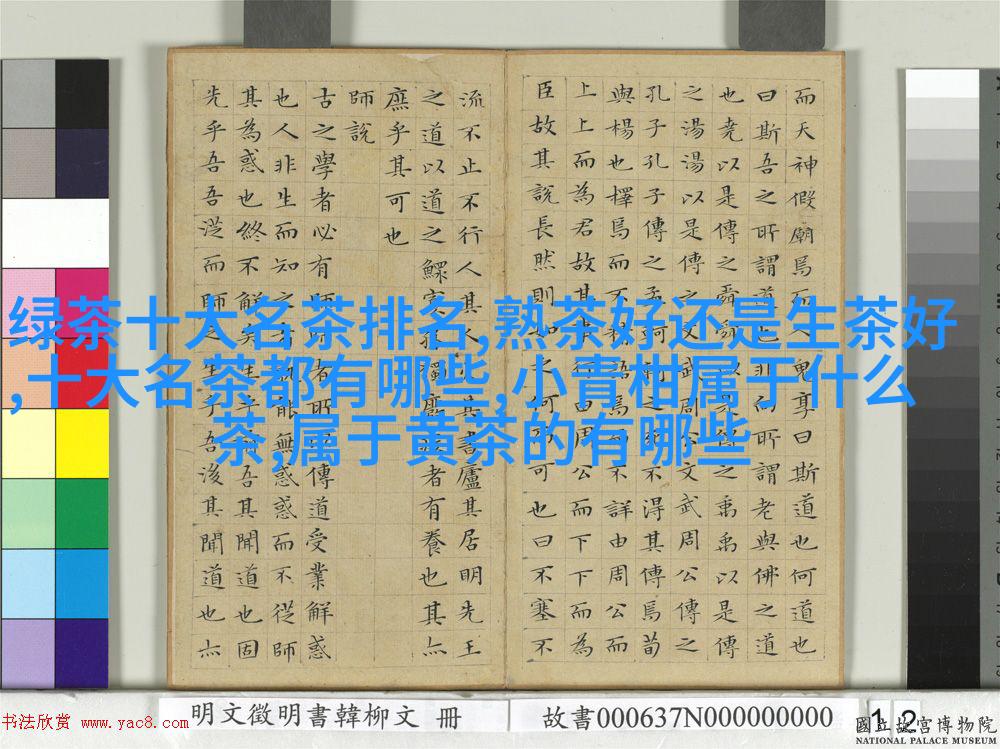 而天神假廟焉而人鬼享曰斯道也何道也
曰斯吾之所謂道也非向所謂老與佛之道
也堯以是傳之舜舜以是傳之禹禹以是傳
之湯湯以是傳之文武周公文武周公傳之
孔子孔子傳之孟軻軻之死不得其傳焉荀
與楊也擇焉而不精語焉而不詳由周公而
上上而為君故其事行由周公而下下而為
臣故其說長然則如之何而可也曰不塞不
流不止不行人其人火其書廬其居明先王
之道以道之鰥寡孤獨廢疾者有養也其亦
庶乎其可也
師說
古之學者必有師師者所以傳道受業解惑
也人非生而知之者孰能無惑惑而不從師
其為惑也終不解矣生乎吾前其聞道也固
先乎吾吾從而師之生乎吾後其聞道也亦
绿茶十大名茶排名,熟茶好还是生茶好
,十大名茶都有哪些,小青柑属于什么
茶,属于黄茶的有哪些
明文徵明書韓柳文 冊
故書000637N000000000
12
國立故宮博物院
NATIONAL PALACE MUSEUM
书法欣赏 www.yac8.com